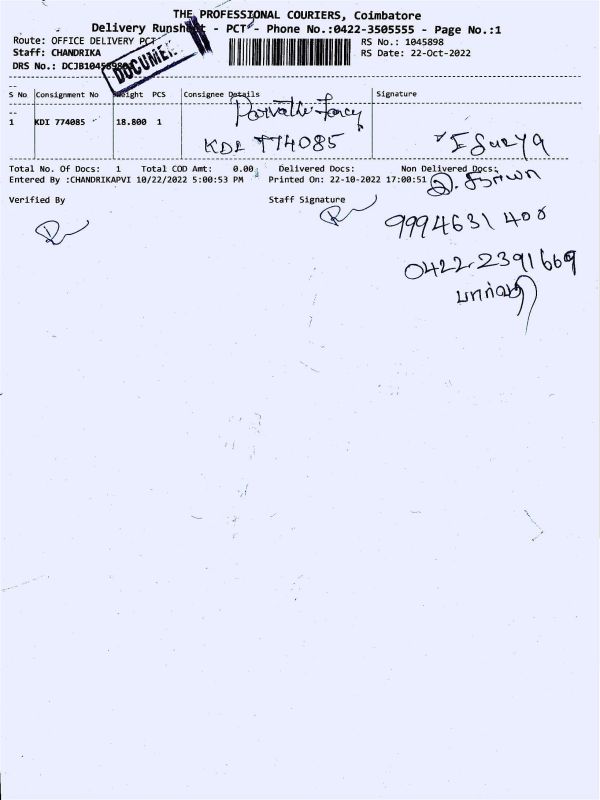 THE PROFESSIONAL COURIERS, Coimbatore
Delivery Runsheet - PCT - Phone No.:0422-3505555 - Page No.:1
Route: OFFICE DELIVERY PCT
RS No.: 1045898
Staff: CHANDRIKA
RS Date: 22-Oct-2022
DRS No.: DCJB1045898
DOCUMENT
S No Consignment No Weight PCS Consignee Details Signature
Parvathi Fancy
1 KDI 774085 18.800 1
KDI 774085
Total No. Of Docs: 1 Total COD Amt: 0.00 Delivered Docs: Non Delivered Docs:
Entered By :CHANDRIKAPVI 10/22/2022 5:00:53 PM Printed On: 22-10-2022 17:00:51
Verified By Staff Signature
9994631400
0422-2391669